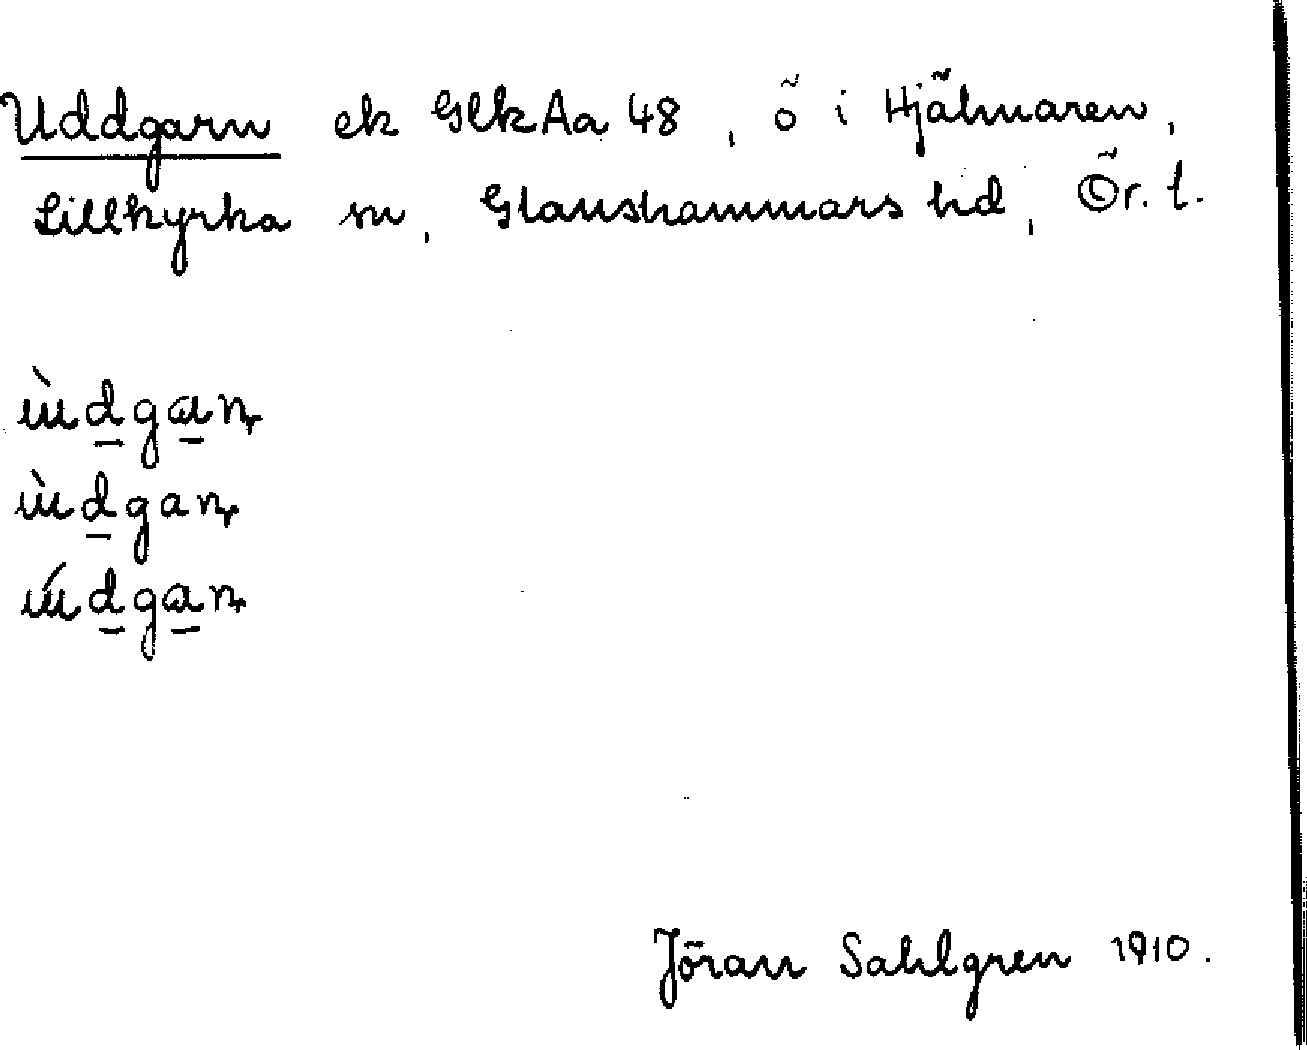 Uddgarn ek Glk Aa 48, ö i Hjälmaren,
Lillkyrka sn, Glanshammars hd, Ör. l.
ùdgaṇ
ùdgaṇ
údgaṇ
Jöran Sahlgren 1910.